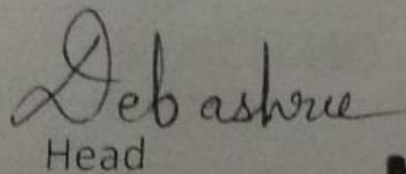 Debashree
Head